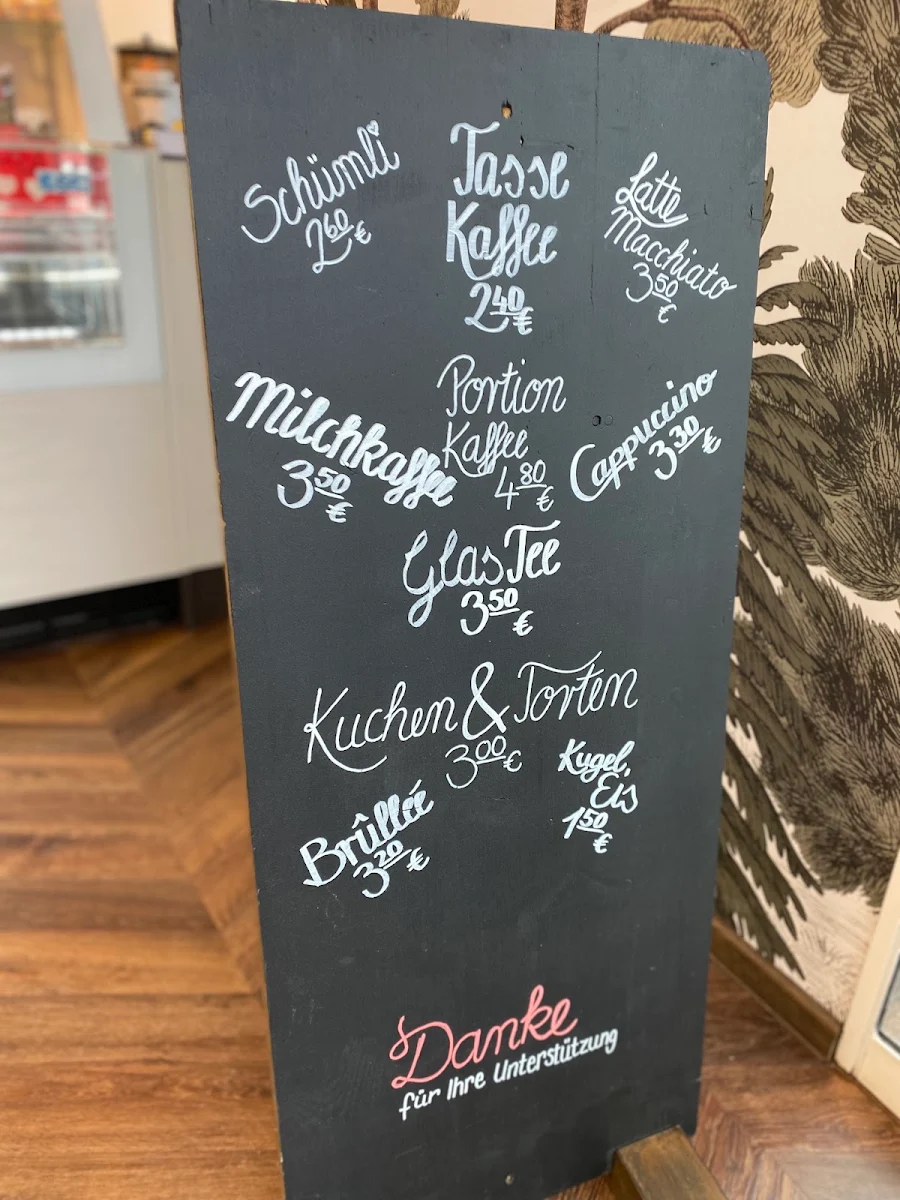 Schümli
2⁶⁰ €
Tasse
Kaffee
2⁴⁰ €
Latte
Macchiato
3⁵⁰ €
Milchkaffee
3⁵⁰ €
Portion
Kaffee
4⁸⁰ €
Cappuccino
3³⁰ €
Glas Tee
3⁵⁰ €
Kuchen & Torten
3⁰⁰ €
Brûllée
3²⁰ €
Kugel,
Eis
1⁵⁰ €
Danke
für Ihre Unterstützung